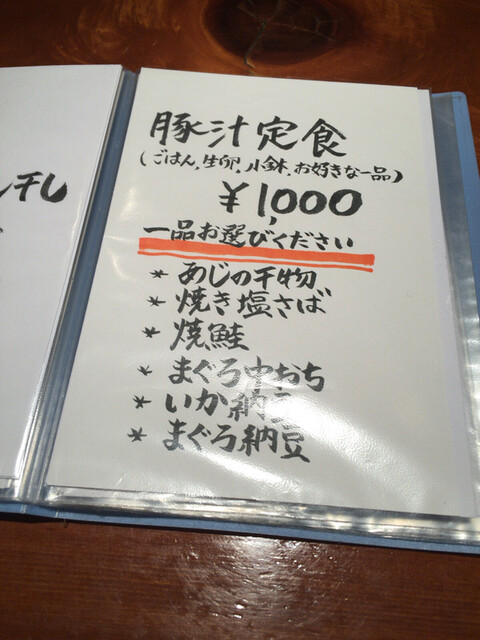 し干し
豚汁定食
(ごはん,生卵,小鉢,お好きな一品)
¥1,000
一品お選びください
* あじの干物
* 焼き塩さば
* 焼鮭
* まぐろ中おち
* いか納豆
* まぐろ納豆